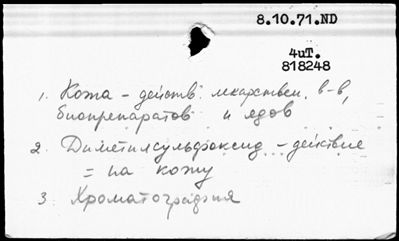 8.10.71.ND
4иТ.
818248
1. Кожа - действ. лекарствен. в-в,
биопрепаратов и ядов
2. Диметилсульфоксид - действие
= на кожу
3. Хроматография